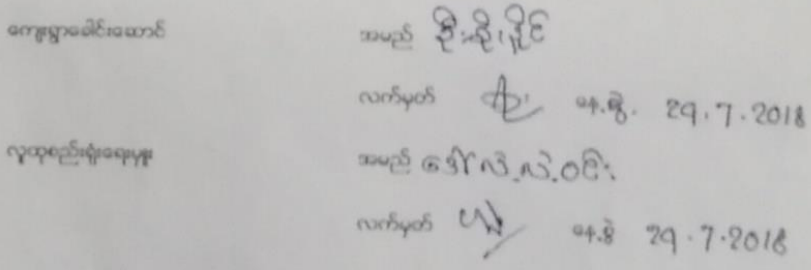 ကျေးရွာခေါင်းဆောင် အမည် ဦးစိုးပိုင်
လက်မှတ် နေ့စွဲ. 29.7.2018
လူထုစည်းရုံးရေးမှူး အမည် ဒေါ်လဲ့လဲ့ဝင်း
လက်မှတ် နေ့စွဲ 29.7.2018